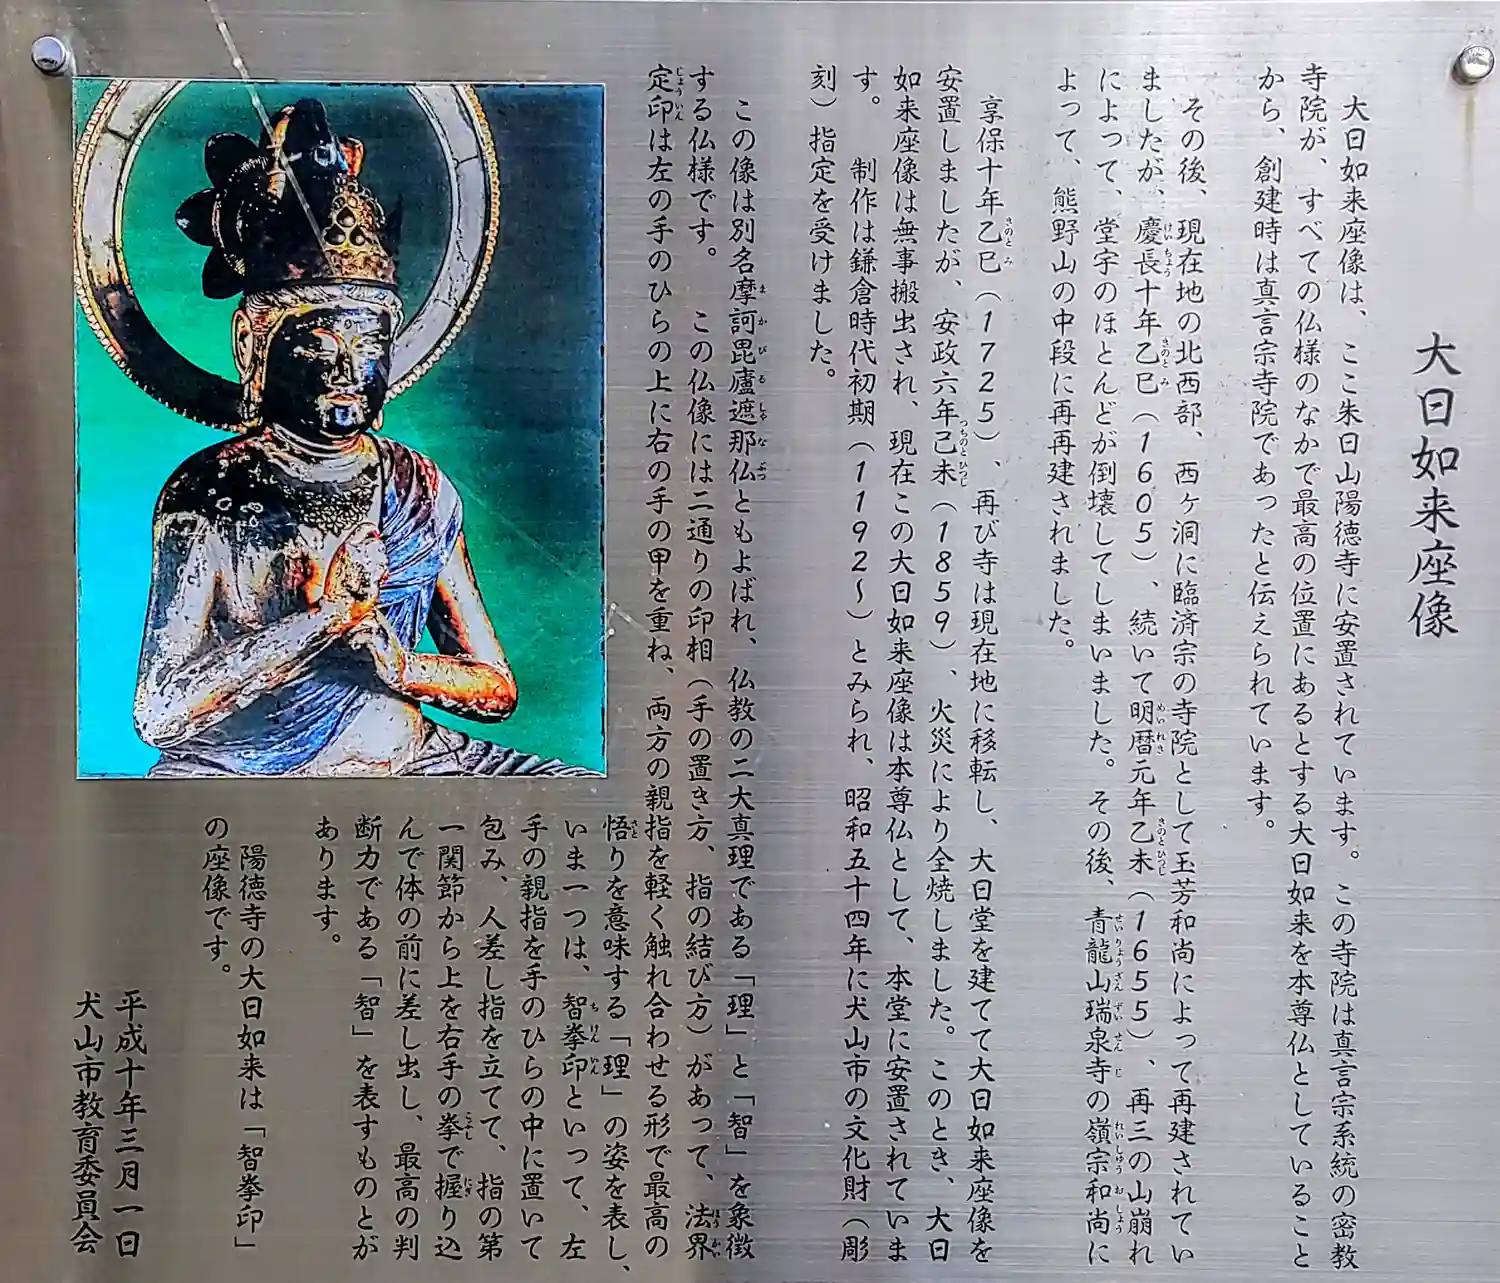 大日如来座像
大日如来座像は、ここ朱日山陽徳寺に安置されています。この寺院は真言宗系統の密教
寺院が、すべての仏様のなかで最高の位置にあるとする大日如来を本尊仏としていること
から、創建時は真言宗寺院であったと伝えられています。
その後、現在地の北西部、西ヶ洞に臨済宗の寺院として玉芳和尚によって再建されてい
ましたが、慶長十年乙巳（1605）、続いて明暦元年乙未（1655）、再三の山崩れ
によって、堂宇のほとんどが倒壊してしまいました。その後、青龍山瑞泉寺の嶺宗和尚に
よって、熊野山の中段に再再建されました。
享保十年乙巳（1725）、再び寺は現在地に移転し、大日堂を建てて大日如来座像を
安置しましたが、安政六年己未（1859）、火災により全焼しました。このとき、大日
如来座像は無事搬出され、現在この大日如来座像は本尊仏として、本堂に安置されていま
す。　制作は鎌倉時代初期（1192～）とみられ、昭和五十四年に犬山市の文化財（彫
刻）指定を受けました。
この像は別名摩訶毘廬遮那仏ともよばれ、仏教の二大真理である「理」と「智」を象徴
する仏様です。　この仏像には二通りの印相（手の置き方、指の結び方）があって、法界
定印は左の手のひらの上に右の手の甲を重ね、両方の親指を軽く触れ合わせる形で最高の
悟りを意味する「理」の姿を表し、
いま一つは、智拳印といって、左
手の親指を手のひらの中に置いて
包み、人差し指を立てて、指の第
一関節から上を右手の拳で握り込
んで体の前に差し出し、最高の判
断力である「智」を表すものとが
あります。
陽徳寺の大日如来は「智拳印」
の座像です。
平成十年三月一日
犬山市教育委員会